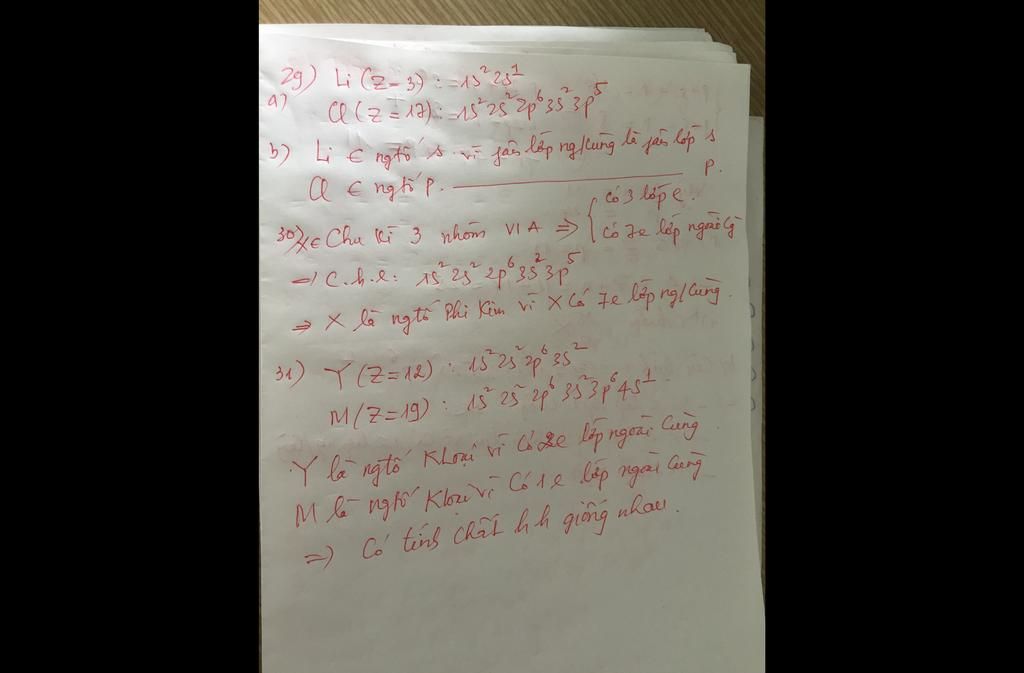 29) Li (Z = 3) : 1s² 2s¹
a) Cl (Z = 17) : 1s² 2s² 2p⁶ 3s² 3p⁵
b) Li ∈ ngtố s vì phân lớp ng/cùng là phân lớp s
Cl ∈ ngtố p. ———————— p.
30) X ∈ Chu kì 3 nhóm VI A ⇒ { có 3 lớp e.
có 7e lớp ngoài cg
⇒ C.h.e: 1s² 2s² 2p⁶ 3s² 3p⁵
⇒ X là ngtố Phi Kim vì X có 7e lớp ng/cùng.
31) Y (Z = 12) : 1s² 2s² 2p⁶ 3s²
M (Z = 19) : 1s² 2s² 2p⁶ 3s² 3p⁶ 4s¹
Y là ngtố KLoại vì có 2e lớp ngoài cùng.
M là ngtố Kloại vì có 1e lớp ngoài cùng
⇒) Có tính chất hh giống nhau.